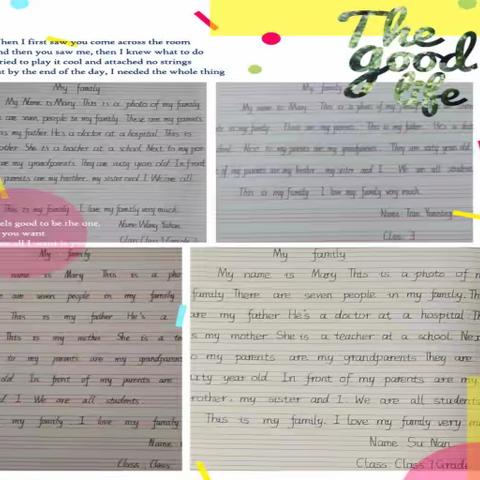 hen I first saw you come across the room
nd then you saw me, then I knew what to do
ried to play it cool and attached no strings
t by the end of the day, I needed the whole thing
The
good
life
My family
My Name is Mary This is a photo of my family
are seven people in my family These are my parents
is my father He's a doctor at a hospital This is
other She is a teacher at a school Next to my par
are my grandparents They are sixty years old In front
parents are my brother, my sister and I We are all
This is my family I love my family very much
Name Wang
Class Class
My family
my name is Mary This is a photo of my
in my family These are my parents This is my father He's a
Next to my parents are my grandparents They are sixty years
of my parents are my brother my sister and I We are all students
This is my family I love my family very much
Name Tian
Class 3
els good to be the one,
you want
My family
name is Mary This is a pho
are seven people in my family
This is my father He's a
This is my mother She is a te
to my parents are my grandparent
old In front of my parents are
d I We are all students
my family I love my family
Name
Class Class
My family
My name is Mary This is a photo of m
family There are seven people in my family. Th
are my father He's a doctor at a hospital Th
s my mother She is a teacher at a school Nex
o my parents are my grandparents They are
ixty year old In front of my parents are my
rother, my sister and I. We are all student
This is my family. I love my family very mu
Name Su Nan
Class Class 1 Grade